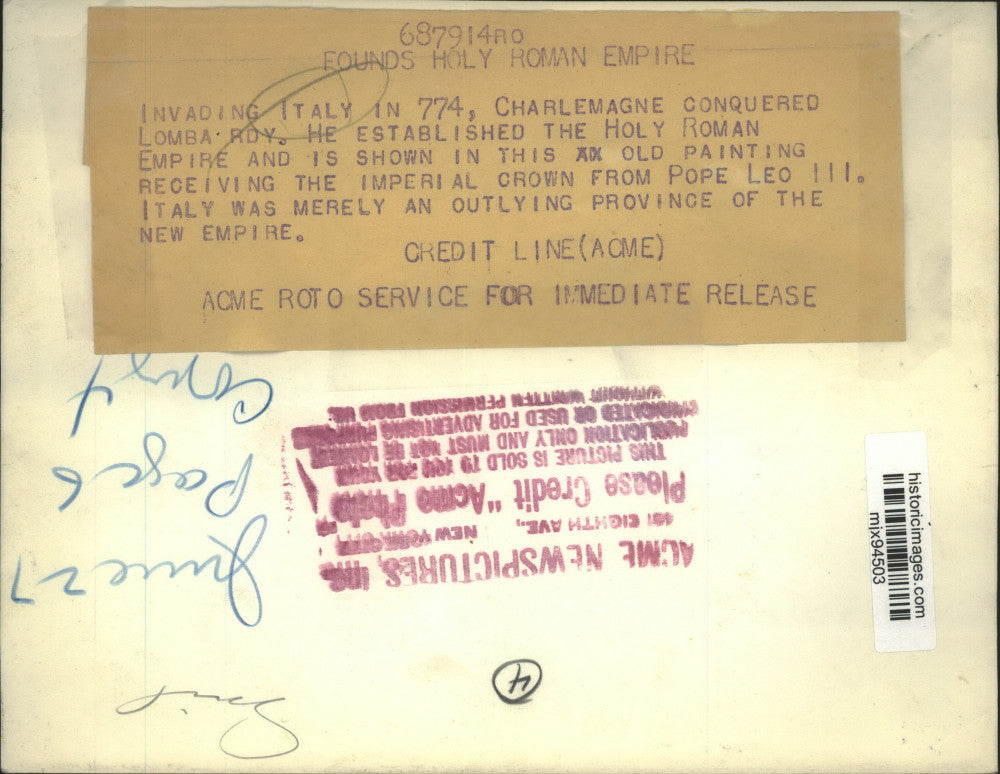 687914RO
FOUNDS HOLY ROMAN EMPIRE
INVADING ITALY IN 774, CHARLEMAGNE CONQUERED
LOMBA RDY. HE ESTABLISHED THE HOLY ROMAN
EMPIRE AND IS SHOWN IN THIS XX OLD PAINTING
RECEIVING THE IMPERIAL CROWN FROM POPE LEO III.
ITALY WAS MERELY AN OUTLYING PROVINCE OF THE
NEW EMPIRE.
CREDIT LINE(ACME)
ACME ROTO SERVICE FOR IMMEDIATE RELEASE
June 27
Page 6
ACME NEWSPICTURES, Inc.
461 EIGHTH AVE., NEW YORK CITY
Please Credit "Acme Photo"
THIS PICTURE IS SOLD TO YOU FOR YOUR
PUBLICATION ONLY AND MUST NOT BE LOANED,
SYNDICATED OR USED FOR ADVERTISING PURPOSES
WITHOUT WRITTEN PERMISSION FROM US.
historicimages.com
mjx94503
4